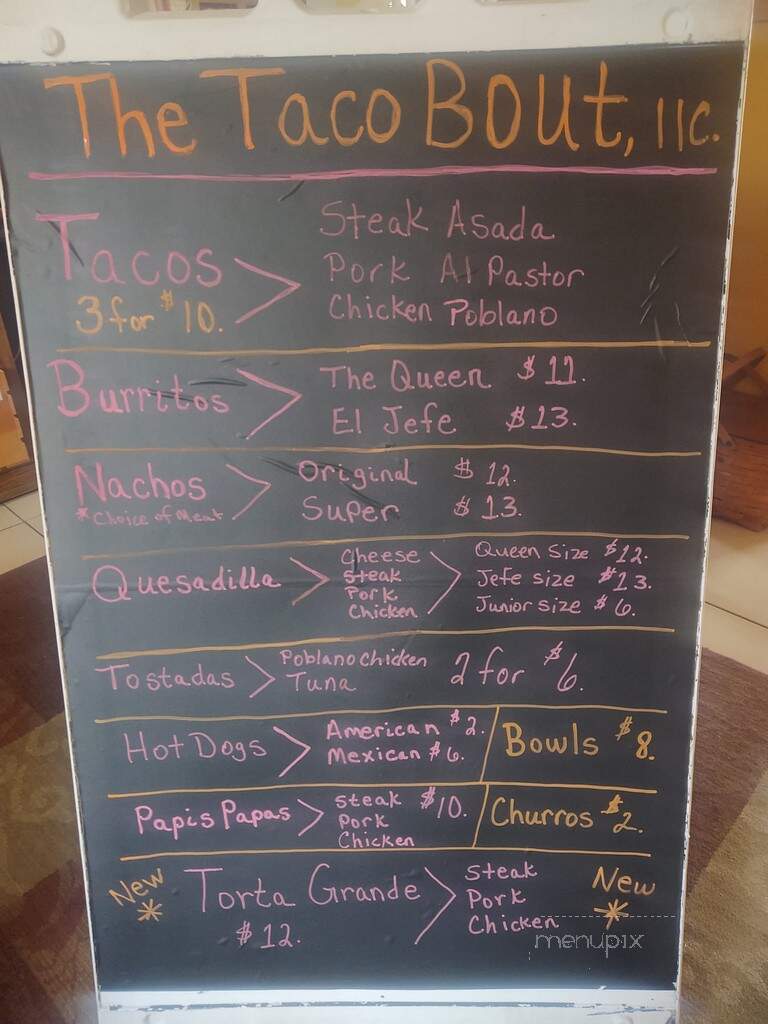 The Taco Bout, llc.
Tacos
3 for $10.
Steak Asada
Pork Al Pastor
Chicken Poblano
Burritos
The Queen $11.
El Jefe $13.
Nachos
*Choice of Meat
Original $12.
Super $13.
Quesadilla
Cheese
Steak
Pork
Chicken
Queen Size $12.
Jefe size $13.
Junior size $6.
Tostadas
Poblano Chicken
Tuna
2 for $6.
Hot Dogs
American $2.
Mexican $6.
Bowls $8.
Papis Papas
Steak $10.
Pork
Chicken
Churros $2.
New *
Torta Grande
$12.
Steak
Pork
Chicken
New *
menupix